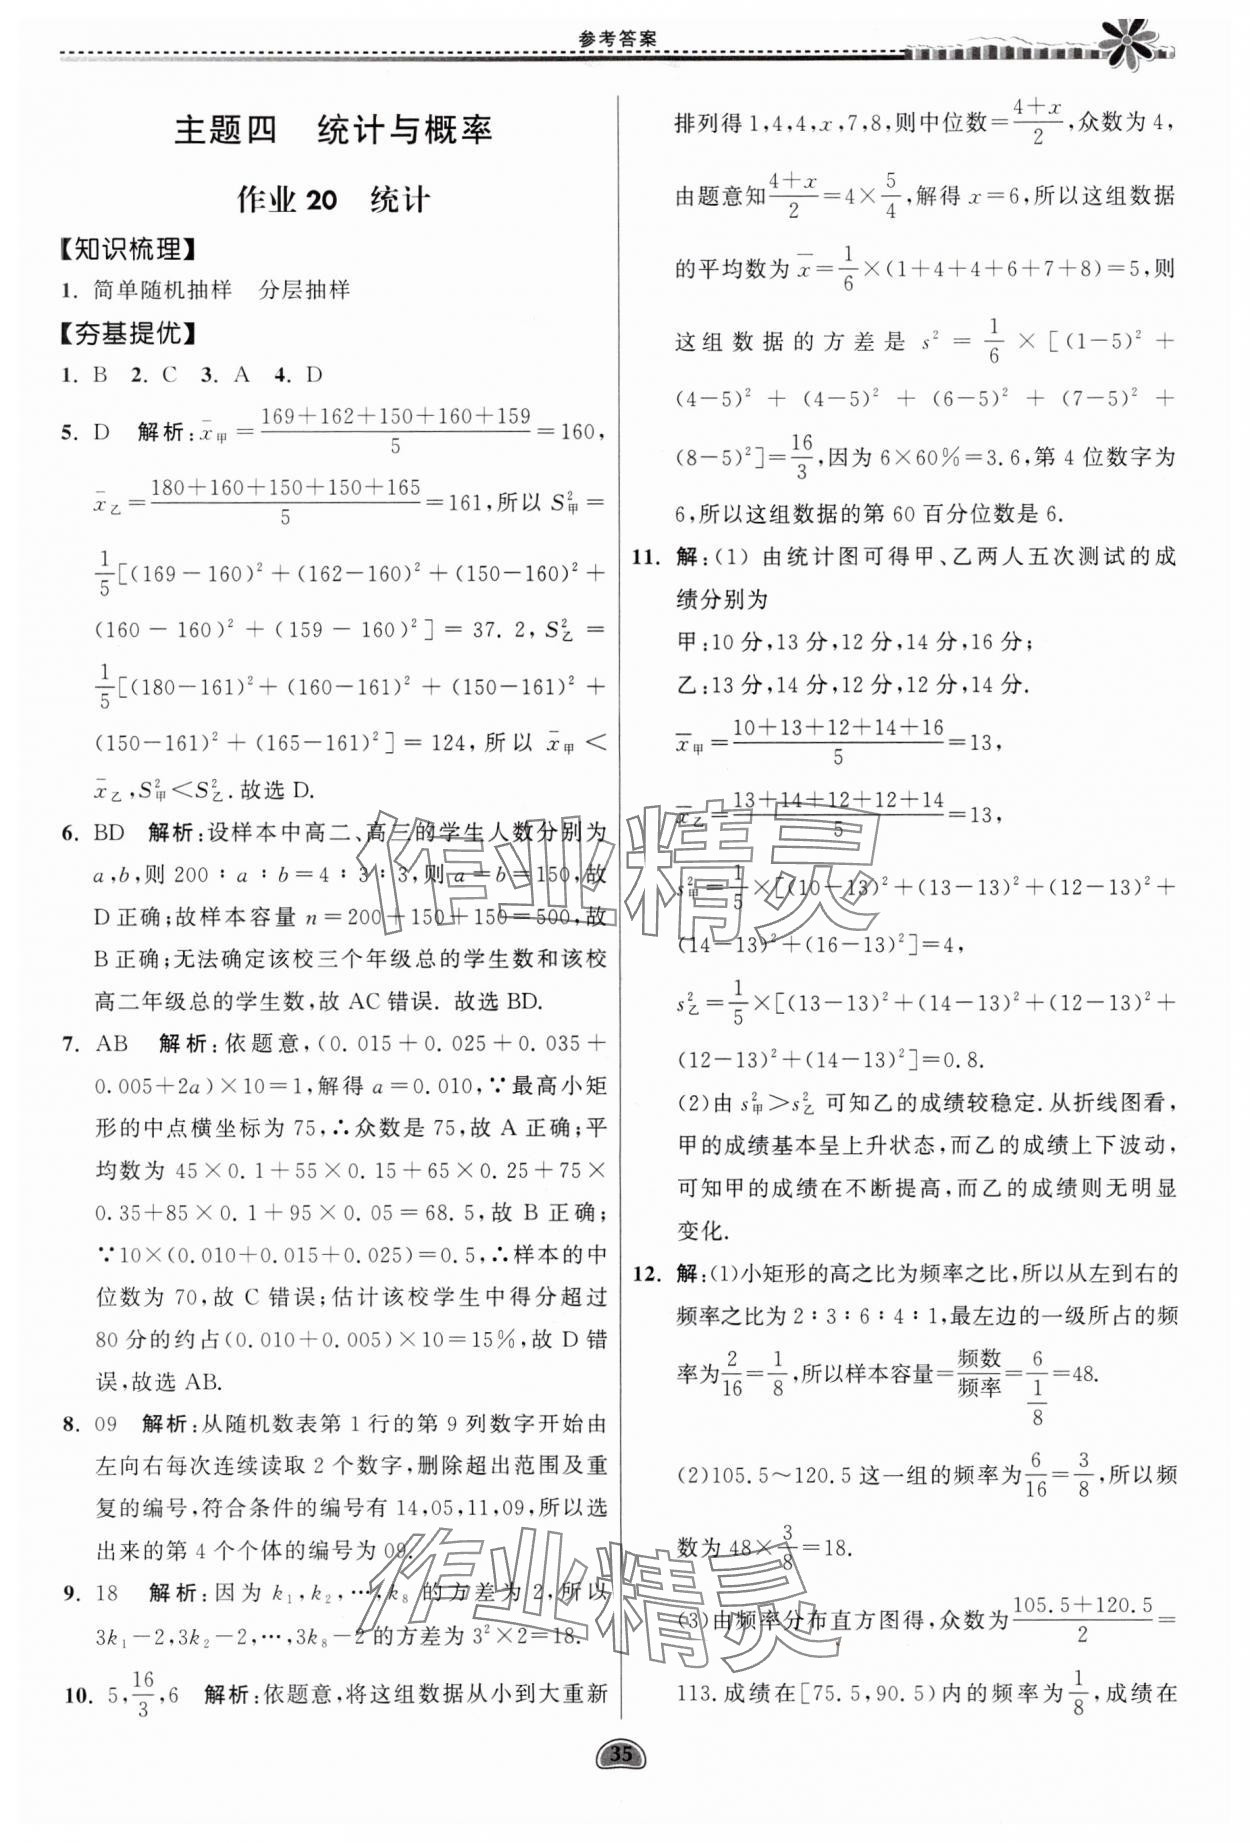 参考答案
主题四 统计与概率
作业20 统计
【知识梳理】
1. 简单随机抽样 分层抽样
【夯基提优】
1. B 2. C 3. A 4. D
5. D 解析:x̄甲=(169+162+150+160+159)/5=160,
x̄乙=(180+160+150+150+165)/5=161,所以 S²甲=
1/5[(169-160)²+(162-160)²+(150-160)²+
(160-160)²+(159-160)²]=37.2,S²乙=
1/5[(180-161)²+(160-161)²+(150-161)²+
(150-161)²+(165-161)²]=124,所以 x̄甲<
x̄乙,S²甲<S²乙.故选 D.
6. BD 解析:设样本中高二、高三的学生人数分别为
a,b,则 200∶a∶b=4∶3∶3,则 a=b=150,故
D 正确;故样本容量 n=200+150+150=500,故
B 正确;无法确定该校三个年级总的学生数和该校
高二年级总的学生数,故 AC 错误. 故选 BD.
7. AB 解析:依题意,(0.015+0.025+0.035+
0.005+2a)×10=1,解得 a=0.010,∵最高小矩
形的中点横坐标为 75,∴众数是 75,故 A 正确;平
均数为 45×0.1+55×0.15+65×0.25+75×
0.35+85×0.1+95×0.05=68.5,故 B 正确;
∵10×(0.010+0.015+0.025)=0.5,∴样本的中
位数为 70,故 C 错误;估计该校学生中得分超过
80 分的约占(0.010+0.005)×10=15%,故 D 错
误,故选 AB.
8. 09 解析:从随机数表第 1 行的第 9 列数字开始由
左向右每次连续读取 2 个数字,删除超出范围及重
复的编号,符合条件的编号有 14,05,11,09,所以选
出来的第 4 个个体的编号为 09.
9. 18 解析:因为 k₁,k₂,…,k₈ 的方差为 2,所以
3k₁-2,3k₂-2,…,3k₈-2 的方差为 3²×2=18.
10. 5,16/3,6 解析:依题意,将这组数据从小到大重新
排列得 1,4,4,x,7,8,则中位数=(4+x)/2,众数为 4,
由题意知(4+x)/2=4×5/4,解得 x=6,所以这组数据
的平均数为 x̄=1/6×(1+4+4+6+7+8)=5,则
这组数据的方差是 s²=1/6×[(1-5)²+
(4-5)²+(4-5)²+(6-5)²+(7-5)²+
(8-5)²]=16/3,因为 6×60%=3.6,第 4 位数字为
6,所以这组数据的第 60 百分位数是 6.
11. 解:(1) 由统计图可得甲、乙两人五次测试的成
绩分别为
甲:10 分,13 分,12 分,14 分,16 分;
乙:13 分,14 分,12 分,12 分,14 分.
x̄甲=(10+13+12+14+16)/5=13,
x̄乙=(13+14+12+12+14)/5=13,
s²甲=1/5×[(10-13)²+(13-13)²+(12-13)²+
(14-13)²+(16-13)²]=4,
s²乙=1/5×[(13-13)²+(14-13)²+(12-13)²+
(12-13)²+(14-13)²]=0.8.
(2)由 s²甲>s²乙 可知乙的成绩较稳定.从折线图看,
甲的成绩基本呈上升状态,而乙的成绩上下波动,
可知甲的成绩在不断提高,而乙的成绩则无明显
变化.
12. 解:(1)小矩形的高之比为频率之比,所以从左到右的
频率之比为 2∶3∶6∶4∶1,最左边的一级所占的频
率为2/16=1/8,所以样本容量=频数/频率=6/(1/8)=48.
(2)105.5~120.5 这一组的频率为6/16=3/8,所以频
数为 48×3/8=18.
(3)由频率分布直方图得,众数为(105.5+120.5)/2=
113.成绩在[75.5,90.5)内的频率为1/8,成绩在
作业精灵
作业精灵
35